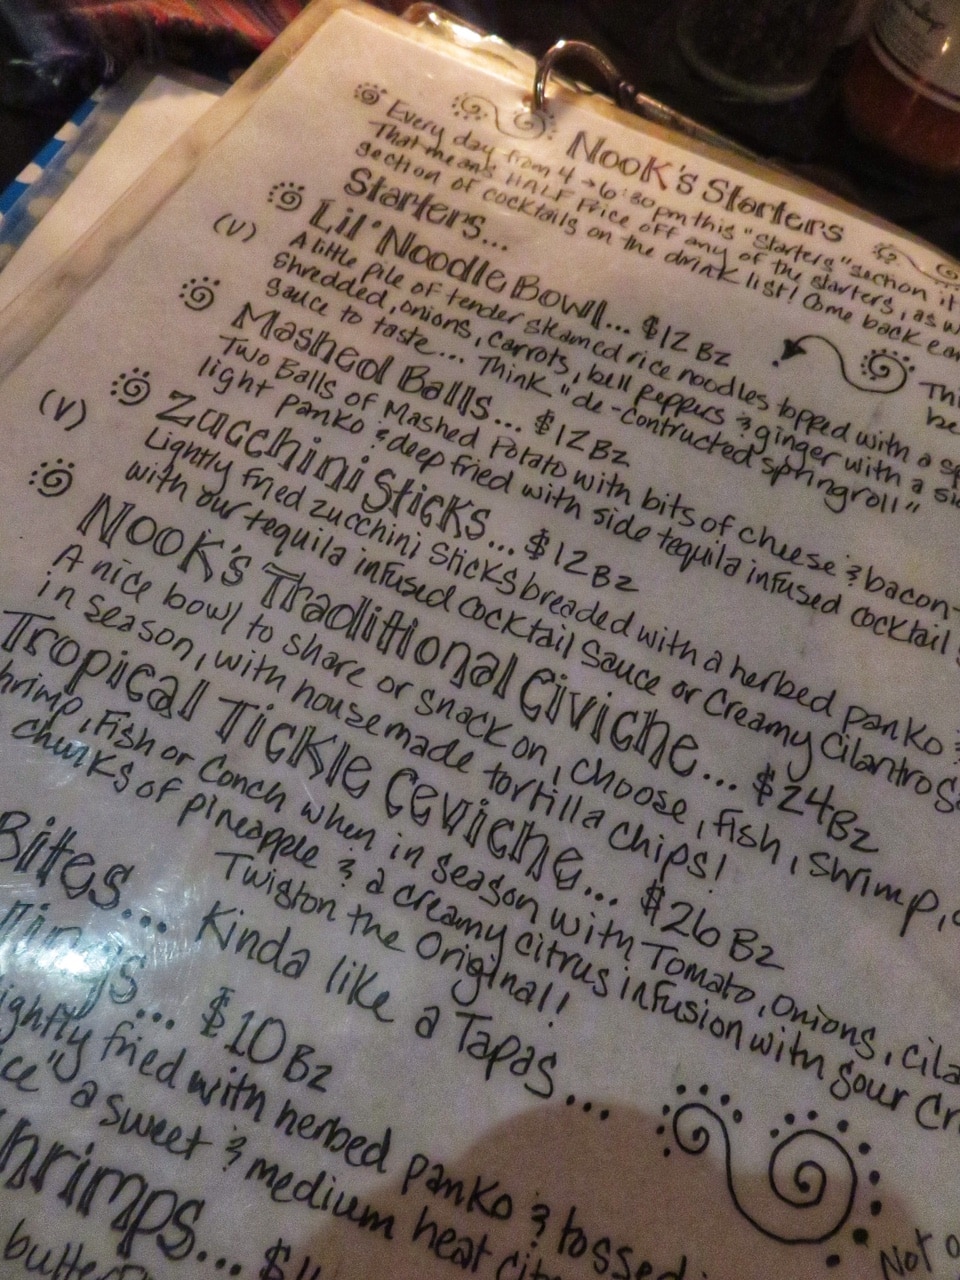 Nook's Starters
Every day from 4 → 6:30 pm this "Starters" section it
That means HALF Price off any of the starters, as w
section of cocktails on the drink list! Come back ear
Starters...
Lil' Noodle Bowl... $12 Bz
(V) A little pile of tender steamed rice noodles topped with a sp
shredded, onions, carrots, bell peppers & ginger with a sid
sauce to taste... Think "de-contructed springroll"
Thi
be
Mashed Balls... $12 Bz
Two Balls of Mashed Potato with bits of cheese & bacon-
light panko & deep fried with side tequila infused cocktail s
Zucchini Sticks... $12 Bz
(V) Lightly fried zucchini sticks breaded with a herbed panko &
with our tequila infused cocktail sauce or Creamy Cilantro Sa
Nook's Traditional Civiche... $24 Bz
A nice bowl to share or snack on, choose, fish, shrimp, c
in season, with housemade tortilla chips!
Tropical Tickle Ceviche... $26 Bz
hrimp, Fish or Conch when in season with Tomato, Onions, cila
chunks of pineapple & a creamy citrus infusion with sour Cr
Twist on the Original!
Bites... Kinda like a Tapas...
ings... $10 Bz
ightly fried with herbed panko & tossed
ce" a sweet & medium heat
hrimps... $
butter
Not